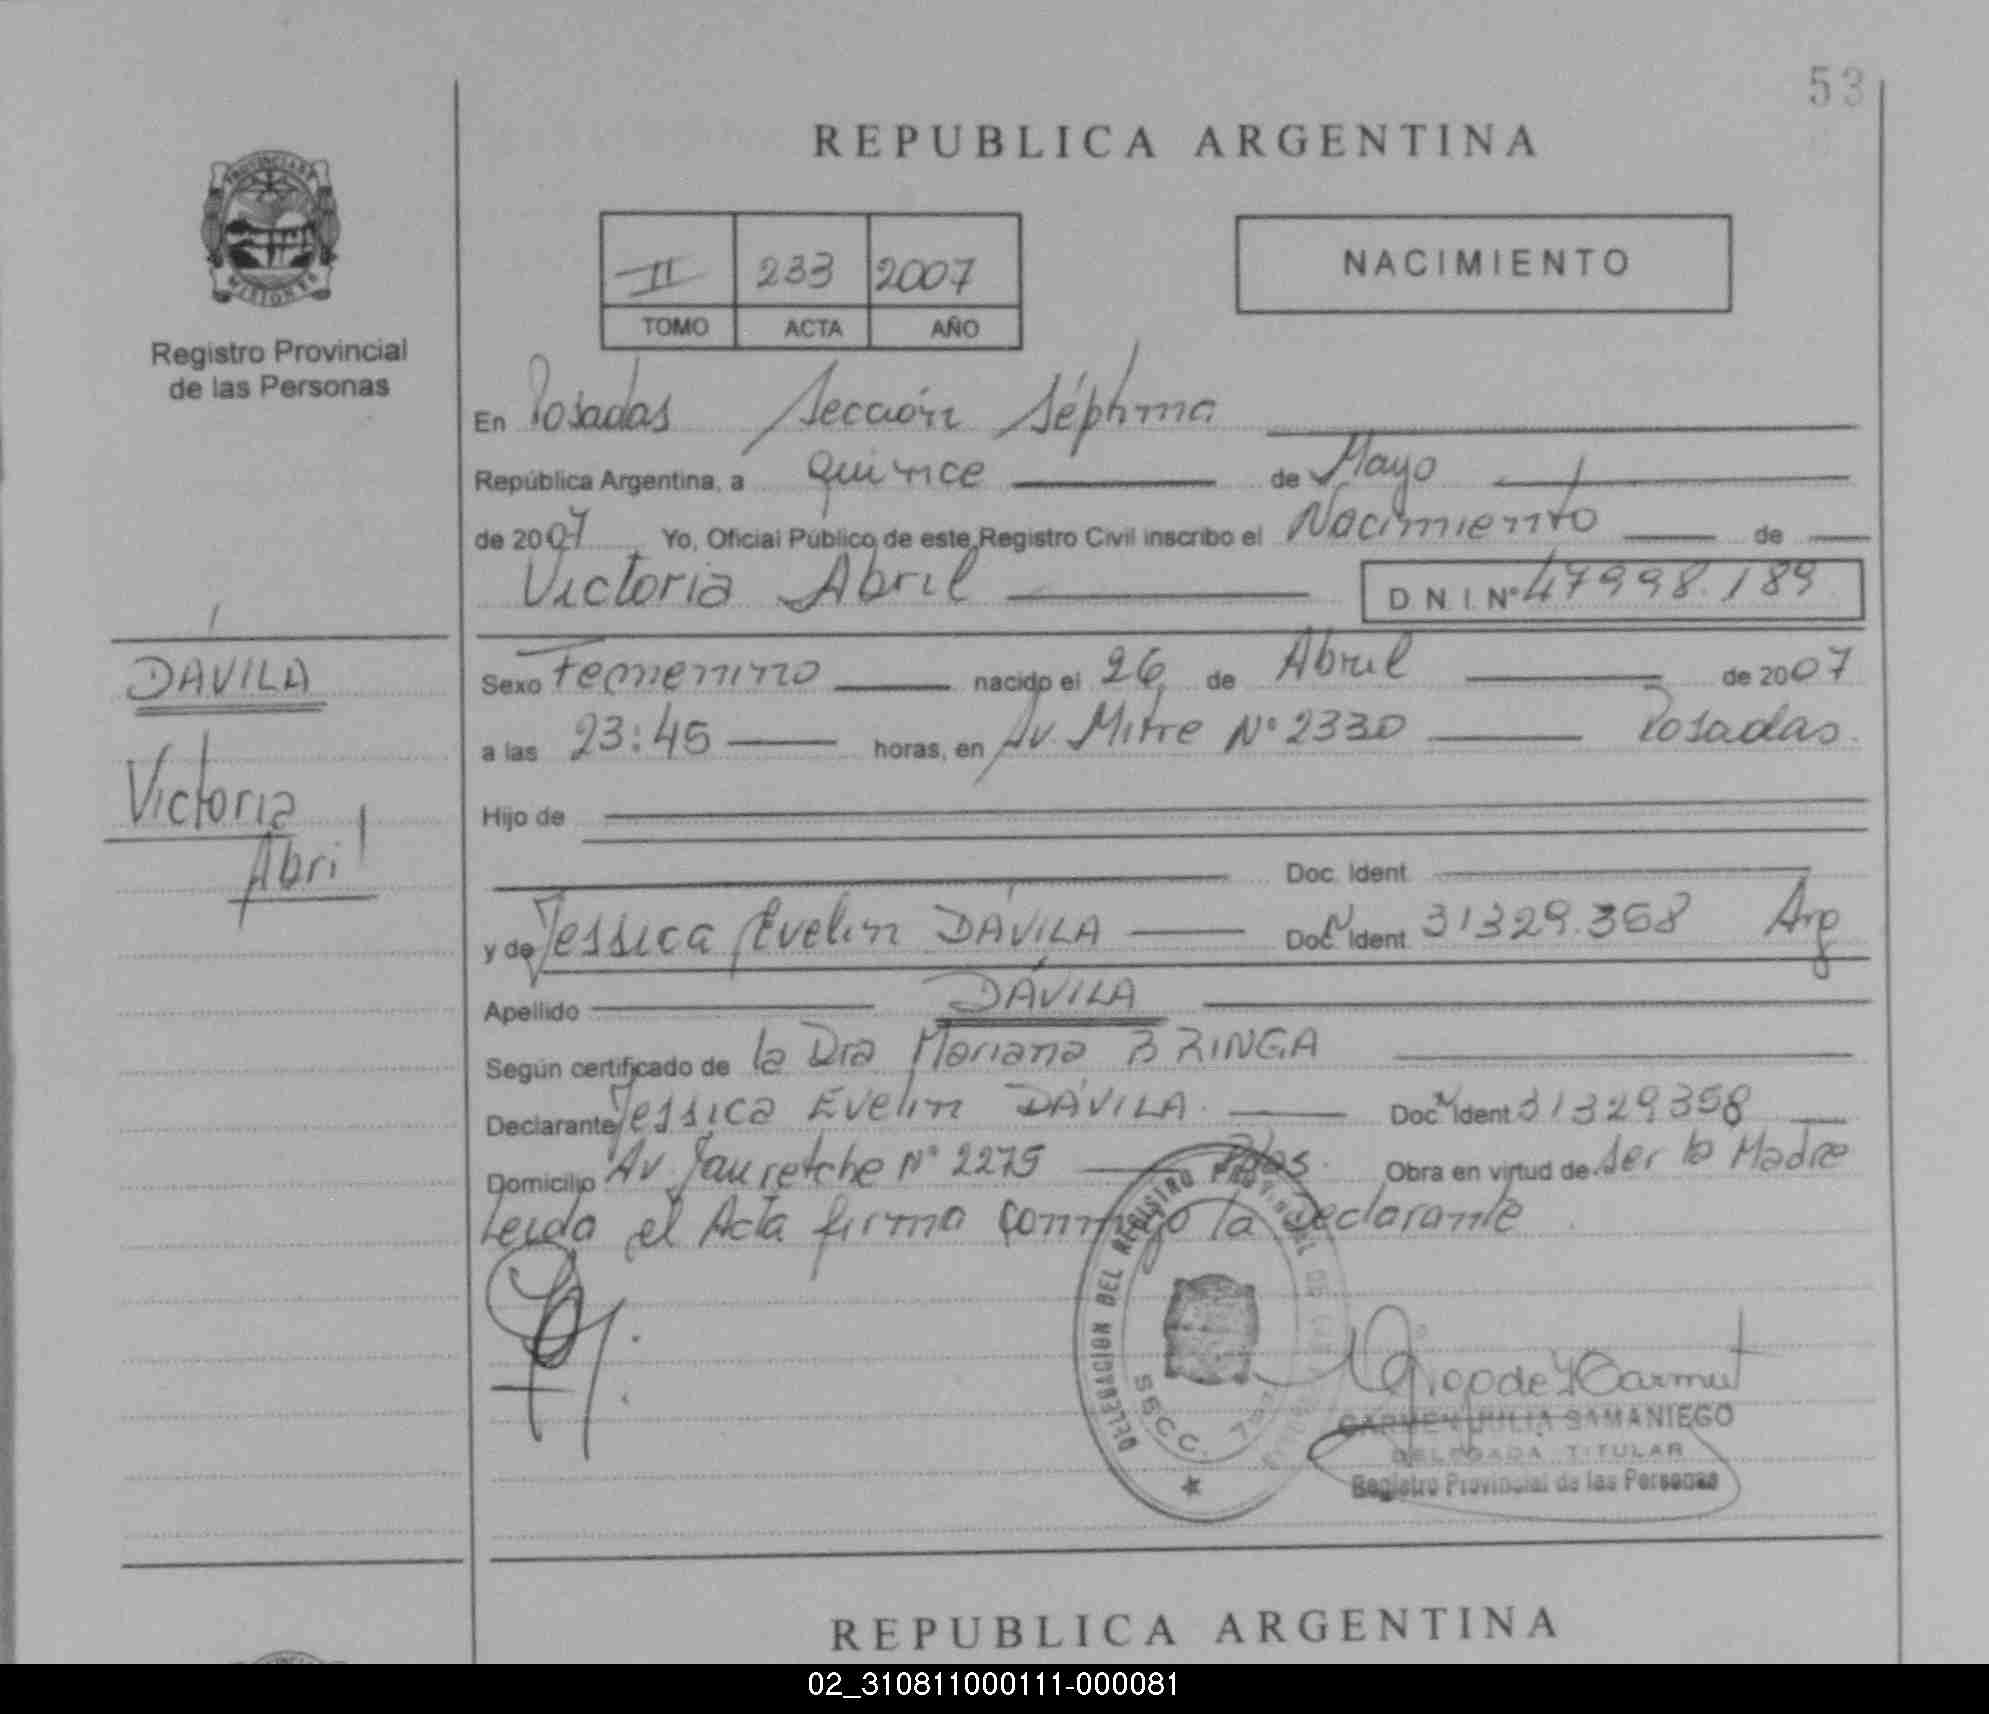 53
REPUBLICA ARGENTINA
PROVINCIA DE
MISIONES
Registro Provincial
de las Personas
II 233 2007
TOMO ACTA AÑO
NACIMIENTO
En Posadas Sección Séptima
República Argentina, a quince de Mayo
de 2007 Yo, Oficial Público de este Registro Civil inscribo el Nacimiento de
Victoria Abril D N I. Nº 47998.189
DAVILA
Victoria
Abril
Sexo Femenino nacido el 26 de Abril de 2007
a las 23:45 horas, en Av. Mitre Nº 2330 Posadas.
Hijo de
Doc. Ident.
y de Jessica Evelin DÁVILA Doc. Ident. 31329.358 Arg
Apellido DÁVILA
Según certificado de la Dra Mariana BRINGA
Declarante Jessica Evelin DÁVILA. Doc. Ident. 31329358
Domicilio Av. Jauretche Nº 2275 Pdas. Obra en virtud de ser la Madre
Leida el Acta firma conmigo la declarante.
DELEGACION DEL REGISTRO PROVINCIAL DE LAS
SECC. 7
CARMEN JULIA SAMANIEGO
DELEGADA TITULAR
Registro Provincial de las Personas
REPUBLICA ARGENTINA
02_310811000111-000081